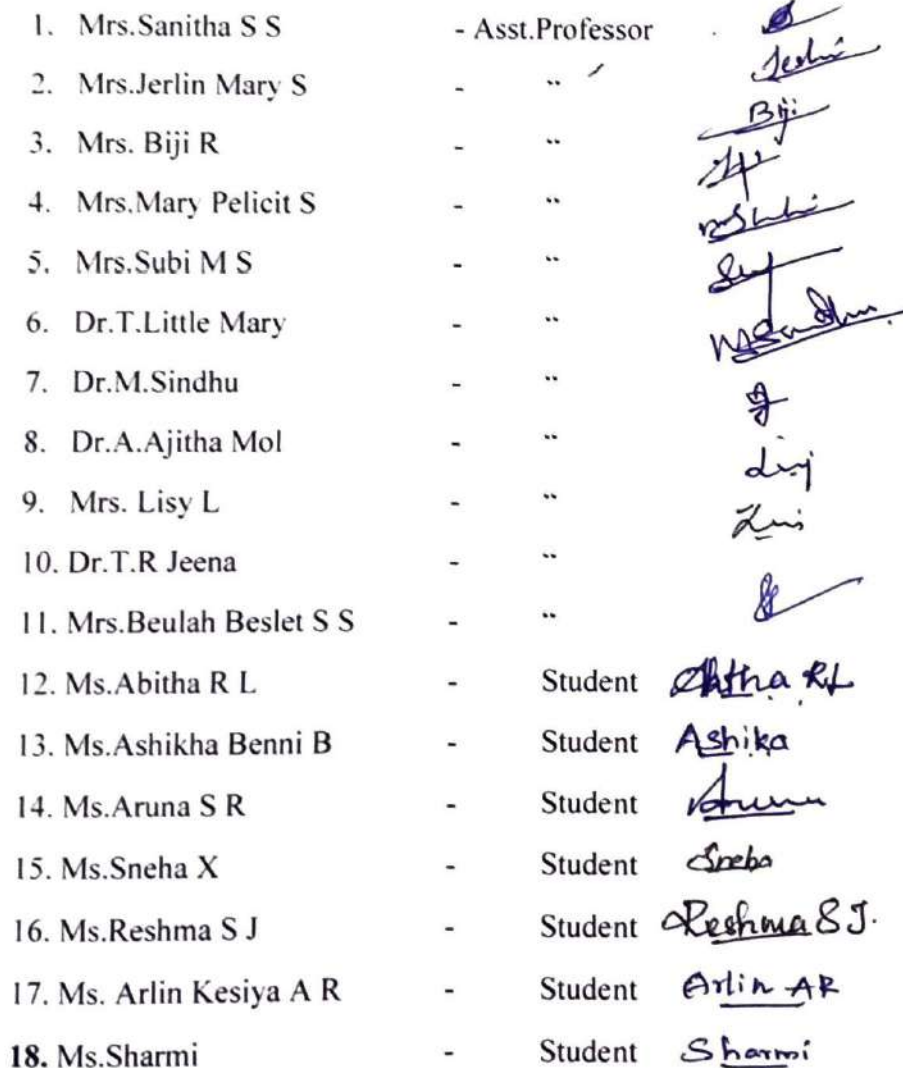 1. Mrs.Sanitha S S - Asst.Professor
2. Mrs.Jerlin Mary S - “ Jerlin
3. Mrs. Biji R - “ Biji
4. Mrs.Mary Pelicit S - “
5. Mrs.Subi M S - “
6. Dr.T.Little Mary - “
7. Dr.M.Sindhu - “ M.Sindhu
8. Dr.A.Ajitha Mol - “
9. Mrs. Lisy L - “
10. Dr.T.R Jeena - “
11. Mrs.Beulah Beslet S S - “
12. Ms.Abitha R L - Student Abitha RL
13. Ms.Ashikha Benni B - Student Ashika
14. Ms.Aruna S R - Student Aruna
15. Ms.Sneha X - Student Sneha
16. Ms.Reshma S J - Student Reshma S J.
17. Ms. Arlin Kesiya A R - Student Arlin AR
18. Ms.Sharmi - Student Sharmi